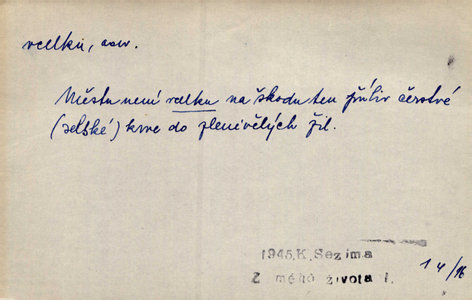 vcelku, adv.
Městu není vcelku na škodu ten příliv čerstvé
(selské) krve do zlenivělých žil.
1945, K. Sezima
Z mého života I.
14/16